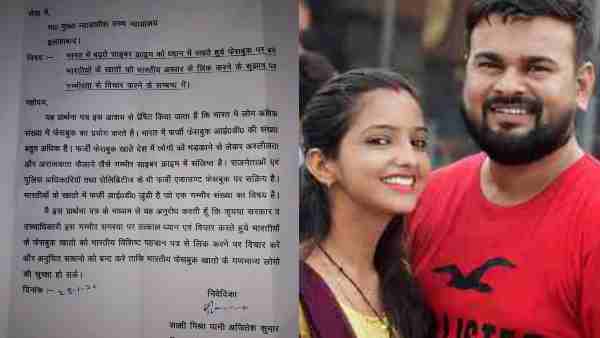 सेवा में,
मा० मुख्य न्यायाधीश उच्च न्यायालय
इलाहाबाद।
विषय :- भारत में बढ़ते साइबर क्राइम को ध्यान में रखते हुये फेसबुक पर बने
भारतीयों के खातों को भारतीय आधार से लिंक करने के सुझाव पर
गम्भीरता से विचार करने के सम्बन्ध में।
महोदय,
यह प्रार्थना पत्र इस आशय से प्रेषित किया जाता है कि भारत में लोग अधिक
संख्या में फेसबुक का प्रयोग करते है। भारत में फर्जी फेसबुक आई०डी० की संख्या
बहुत अधिक है। फर्जी फेसबुक खाते देश में लोगों को भड़काने से लेकर अश्लीलता
और अराजकता फैलाने जैसे गम्भीर साइबर क्राइम में संलिप्त है। राजनेताओं एवं
पुलिस अधिकारियों तथा सेलिब्रिटीज के भी फर्जी एकाउण्ट फेसबुक पर सक्रिय है।
भारतीयों के खातों में फर्जी आई०डी० जुड़ी है जो एक गम्भीर संख्या का विषय है।
मैं इस प्रार्थना पत्र के माध्यम से यह अनुरोध करती हूँ कि कृपया सरकार व
उच्चाधिकारी इस गम्भीर समस्या पर तत्काल ध्यान एवं विचार करते हुये भारतीयों
के फेसबुक खातो को भारतीय विशिष्ट पहचान पत्र से लिंक करने पर विचार करे
और अनुचित साधनो को बन्द करे ताकि भारतीय फेसबुक खातो के गणमान्य लोगो
की सुरक्षा हो सके।
दिनांक :-
निवेदिका
साक्षी मिश्रा पत्नी अजितेश कुमार